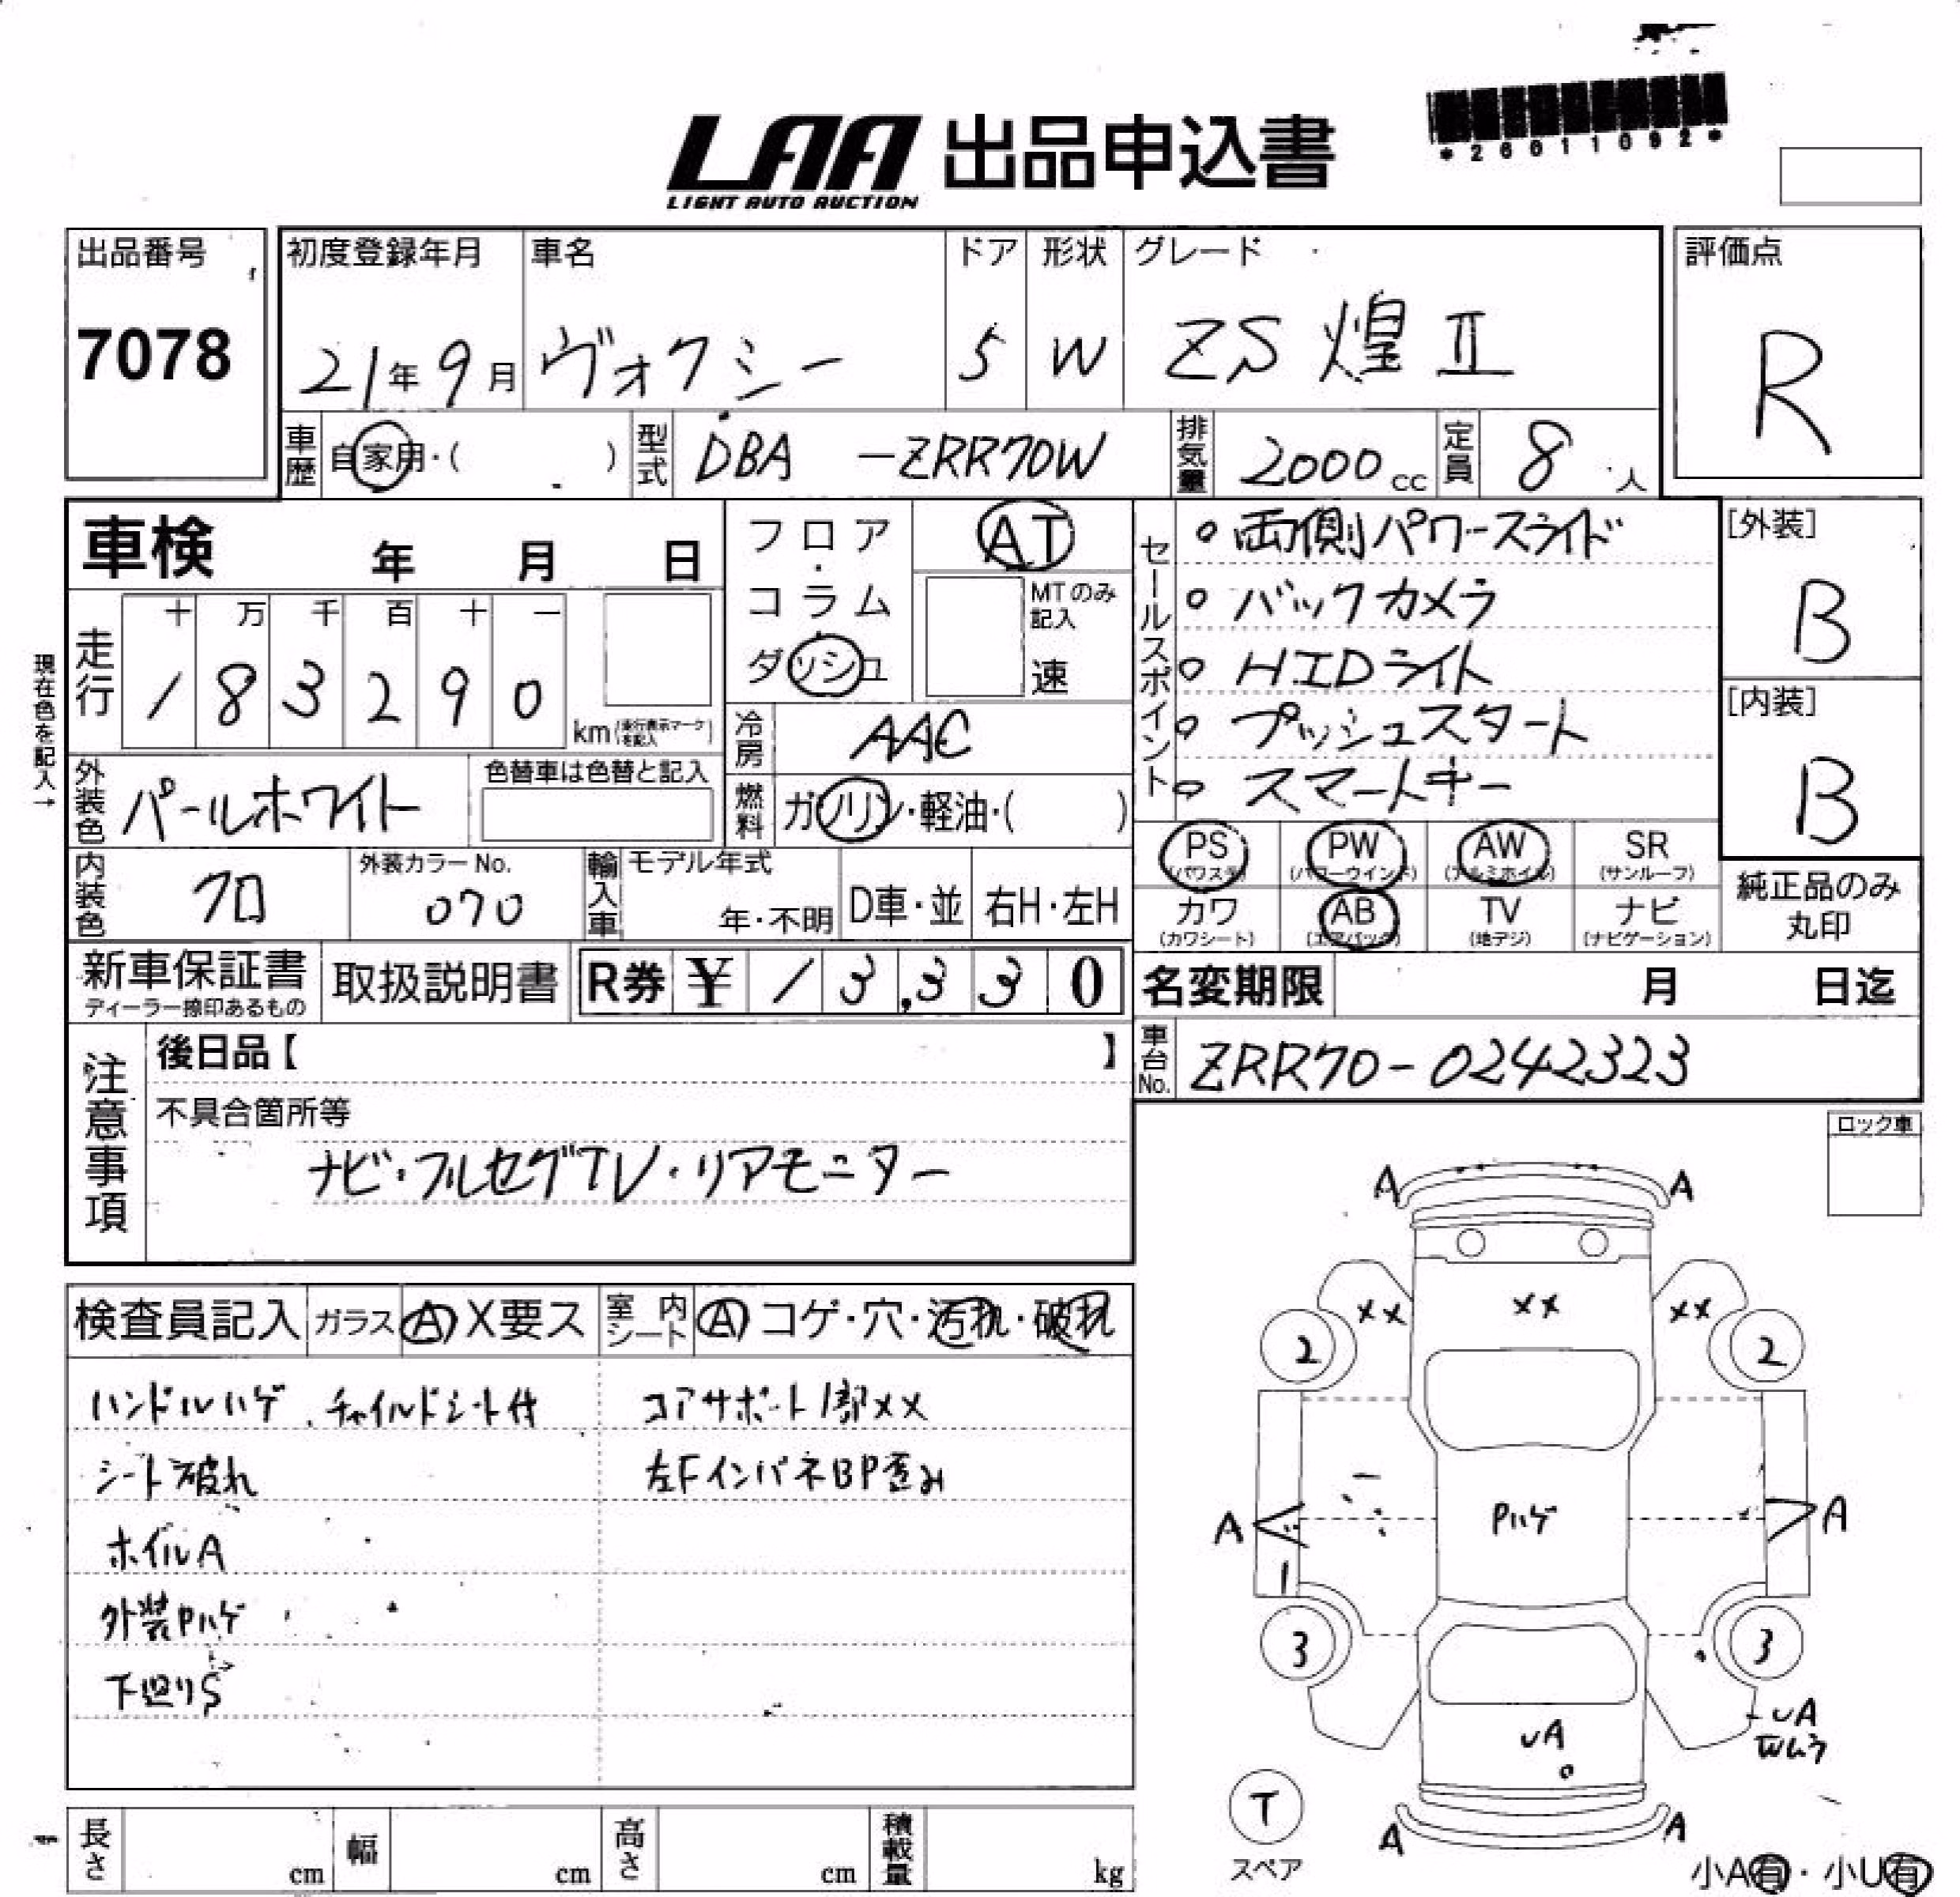 *26011092*
LAA 出品申込書
LIGHT AUTO AUCTION
出品番号
7078
初度登録年月
21年9月
車名
ヴォクシー
ドア
5
形状
W
グレード
ZS 煌 Ⅱ
評価点
R
車歴
自家用・( )
型式
DBA -ZRR70W
排気量
2000cc
定員
8人
車検 年 月 日
走行
十 万 千 百 十 一
1 8 3 2 9 0
km(走行表示マークを記入)
現在色を記入→
外装色
パールホワイト
色替車は色替と記入
内装色
クロ
外装カラーNo.
070
フロア
・
コラム
・
ダッシュ
AT
MTのみ記入
速
冷房
AAC
燃料
ガソリン・軽油・( )
輸入車
モデル年式
年・不明
D車・並
右H・左H
セールスポイント
○ 両側パワースライド
○ バックカメラ
○ HIDライト
○ プッシュスタート
○ スマートキー
PS (パワステ)
PW (パワーウインド)
AW (アルミホイル)
SR (サンルーフ)
カワ (カワシート)
AB (エアバック)
TV (地デジ)
ナビ (ナビゲーション)
[外装]
B
[内装]
B
純正品のみ
丸印
新車保証書
ディーラー捺印あるもの
取扱説明書
R券 ¥ 13,330
名変期限 月 日迄
車台No.
ZRR70-0242323
注意事項
後日品【 】
不具合箇所等
ナビ・フルセグTV・リアモニター
ロック車
検査員記入
ガラス
A X要ス
室内シート
A コゲ・穴・汚れ・破れ
ハンドルハゲ . チャイルドシート付
シート破れ
ホイルA
外装Pハゲ
下廻りS
コアサポート1部XX
左FインパネBP歪み
A A
XX XX XX
2 2
A Pハゲ A
1
3 3
UA
UA
Wムラ
T
スペア
A A
小A有・小U有
長さ cm
幅 cm
高さ cm
積載量 kg